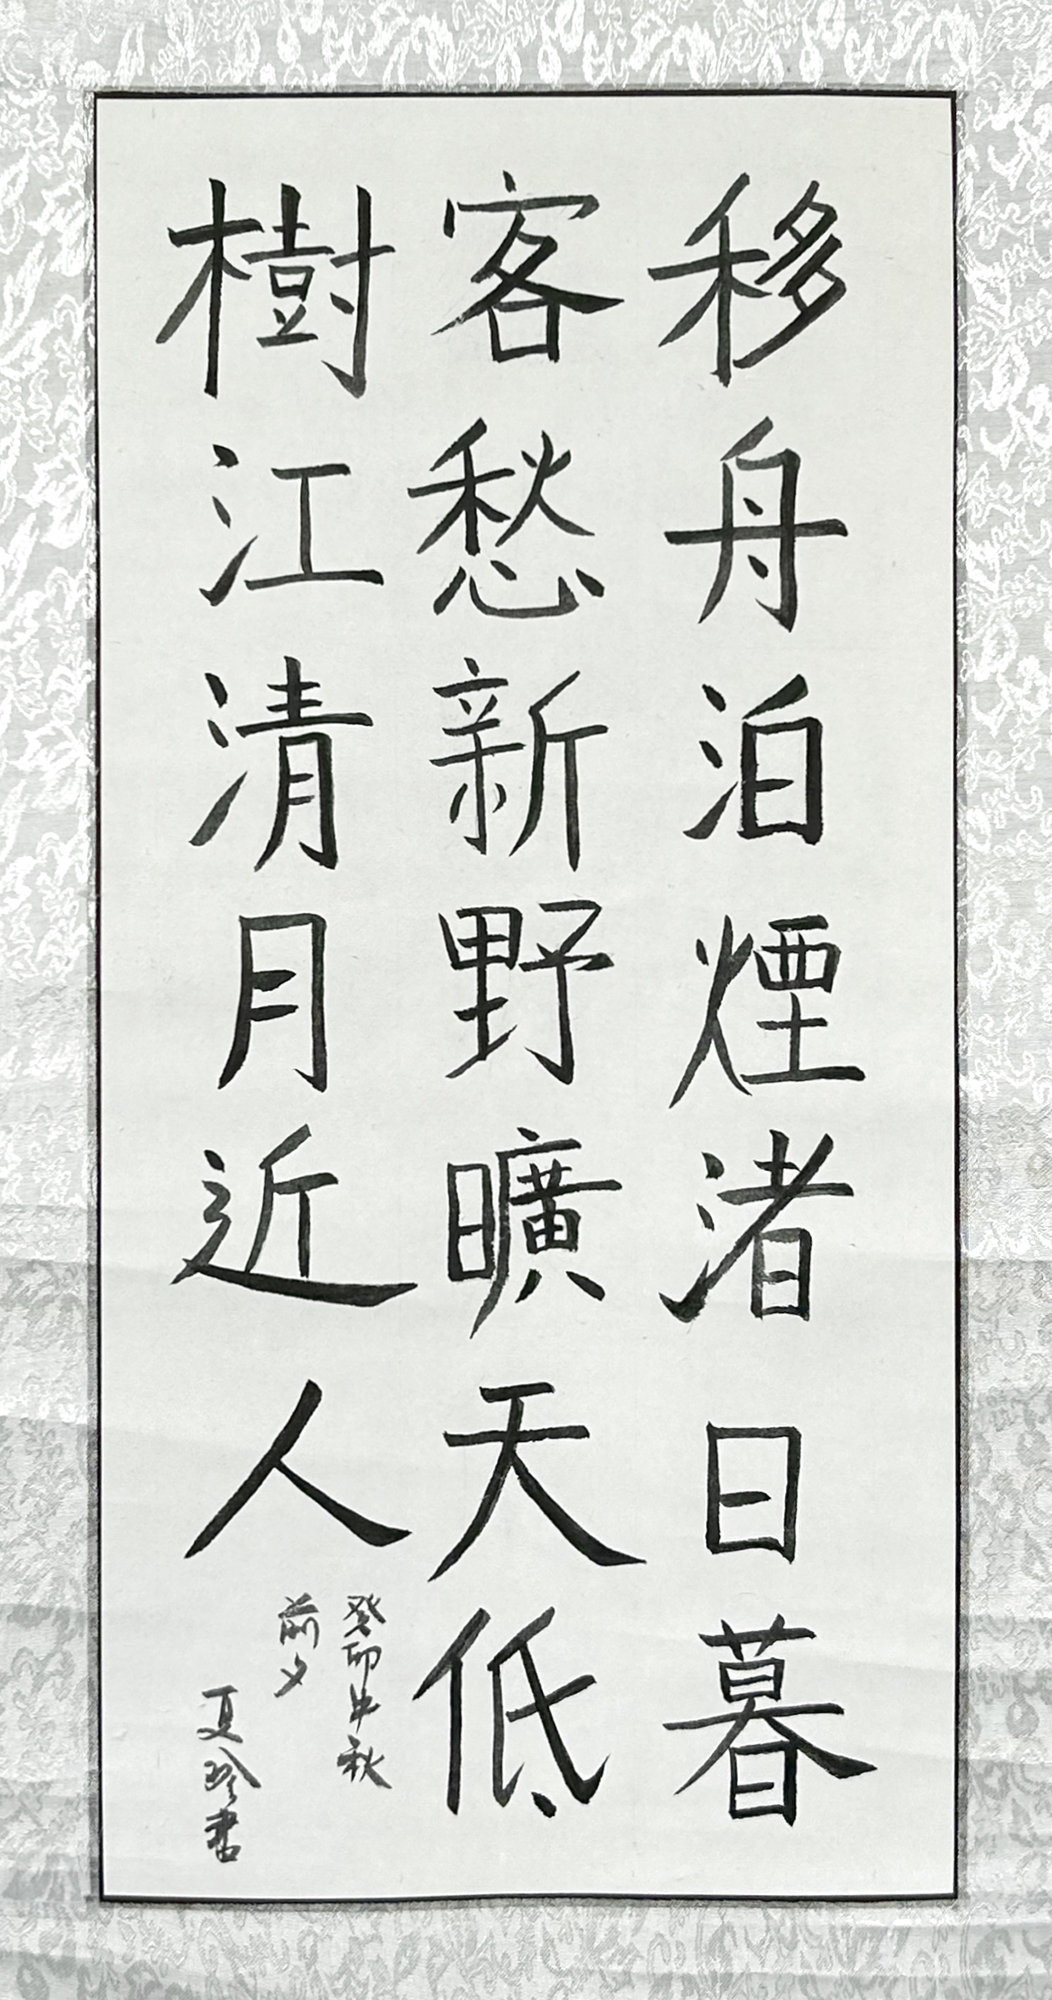 移舟泊煙渚日暮
客愁新野曠天低
樹江清月近人
癸卯中秋
前夕
夏玲書